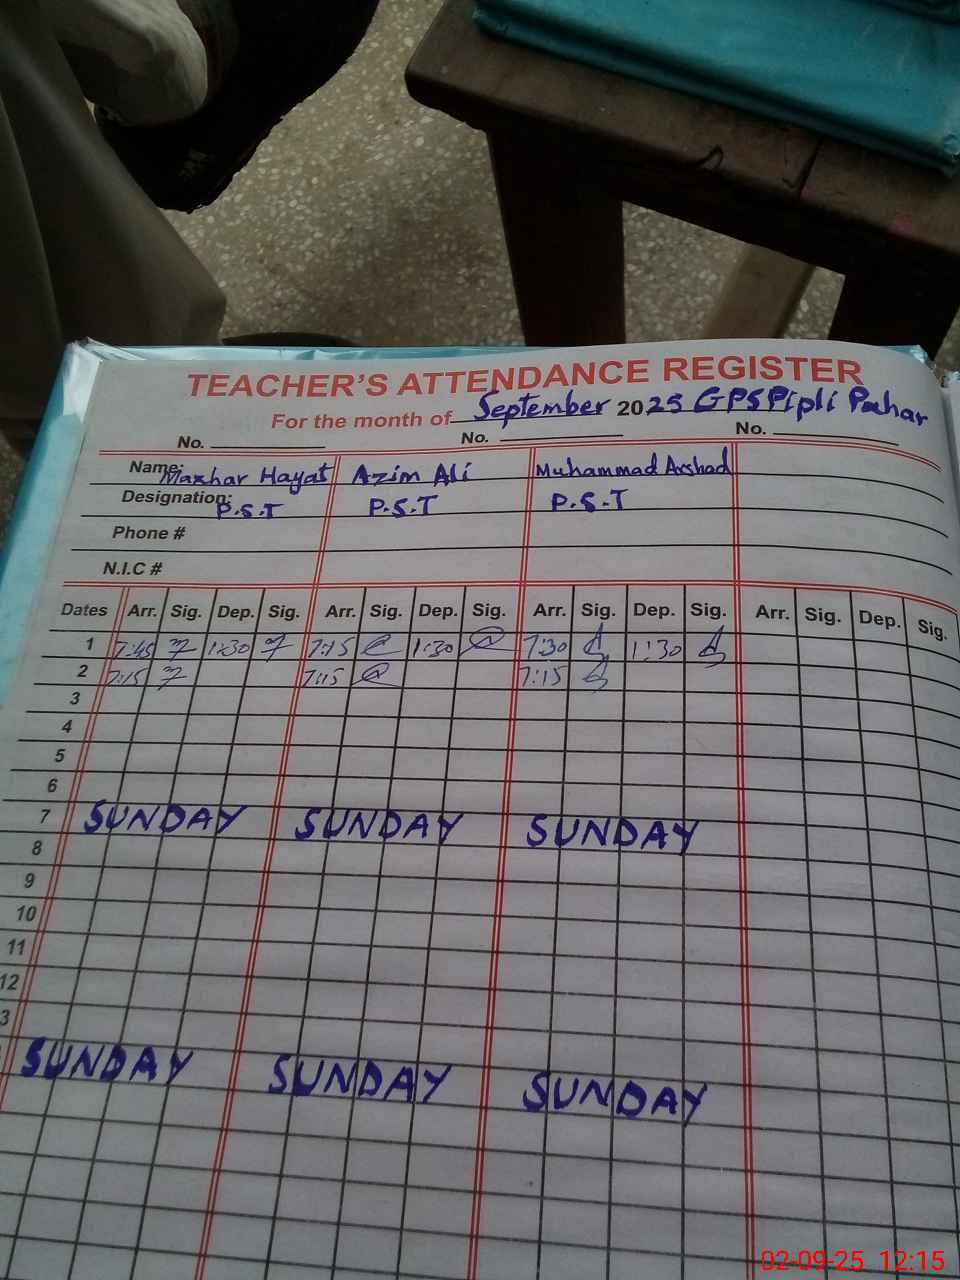 TEACHER'S ATTENDANCE REGISTER
For the month of September 2025 GPS Pipli Pachar
No. No. No.
Name: Mazhar Hayat Azim Ali Muhammad Arshad
Designation: P.S.T P.S.T P.S.T
Phone #
N.I.C #
Dates Arr. Sig. Dep. Sig. Arr. Sig. Dep. Sig. Arr. Sig. Dep. Sig. Arr. Sig. Dep. Sig.
1 7:45 1:30 7:15 1:30 7:30 1:30
2 7:15 7:15 7:15
3
4
5
6
7 SUNDAY SUNDAY SUNDAY
8
9
10
11
12
3
SUNDAY SUNDAY SUNDAY
02-09-25 12:15